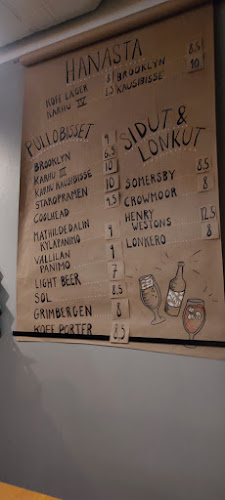 HANASTA
KOFF LAGER 8
KARHU IV 8.5
BROOKLYN 8.5
KAUSIBISSE 10
PULLOBISSET
BROOKLYN 9
KARHU III 6.5
KARHU KAUSIBISSE 10
STAROPRAMEN 10
COOLHEAD 9.5
MATHILDEDALIN
KYLÄPANIMO 9
VALLILAN
PANIMO 9
LIGHT BEER 7
SOL 8.5
GRIMBERGEN 8
KOFF PORTER 8.5
SIDUT &
LONKUT
SOMERSBY 8.5
CROWMOOR 8
HENRY
WESTONS 12.5
LONKERO 8